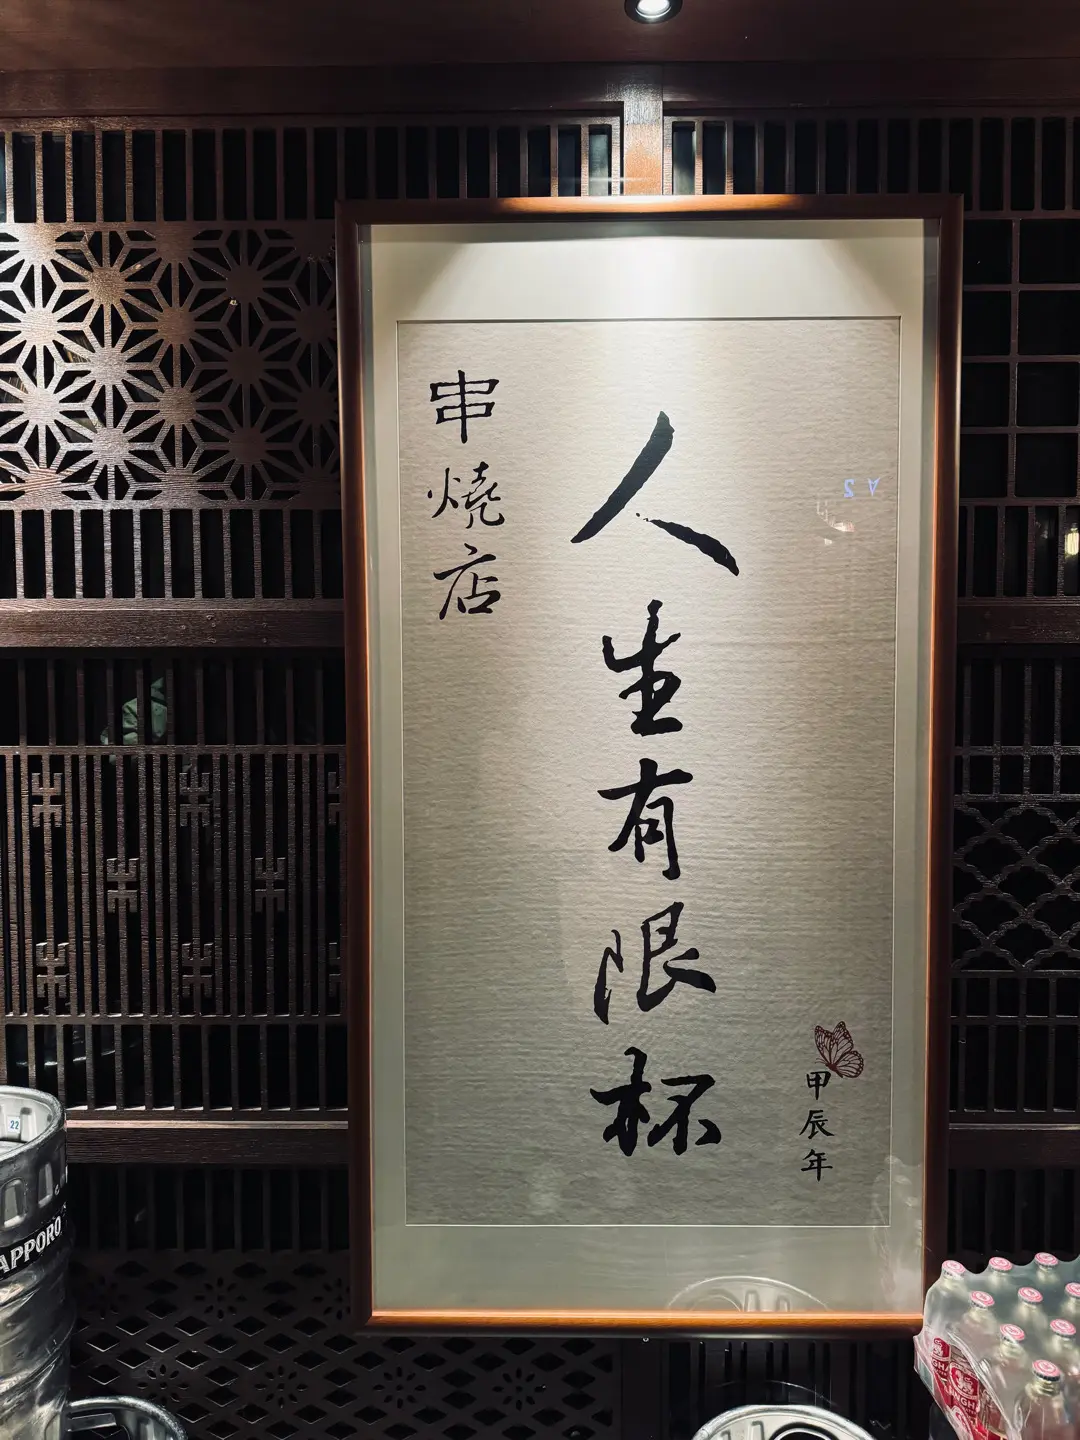 人生有限杯
串燒店
甲辰年
SAPPORO
22